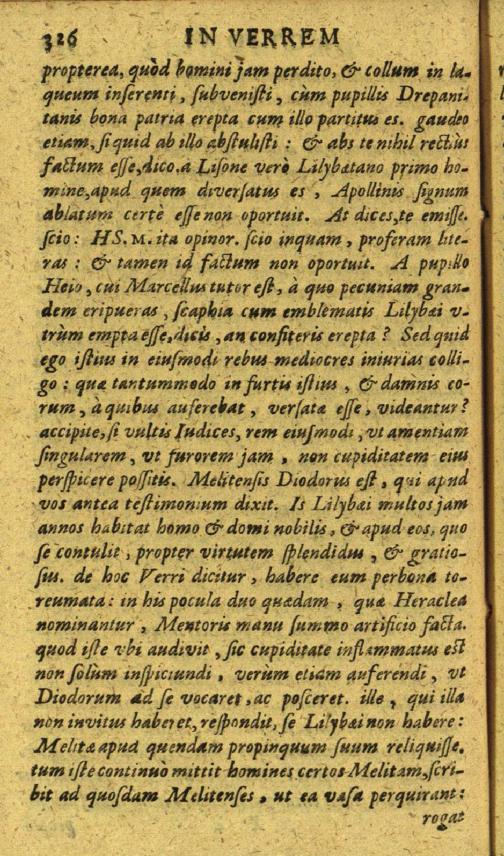 326 IN VERREM
propterea, quòd homini jam perdito, & collum in la-
queum inserenti, subvenisti, cùm pupillis Drepani-
tanis bona patria erepta cum illo partitus es. gaudeo
etiam, si quid ab illo abstulisti: & abs te nihil rectiùs
factum esse, dico. à Lisone verò Lilybætano primo ho-
mine, apud quem diversatus es, Apollinis signum
ablatum certè esse non oportuit. At dices, te emisse.
scio: HS. M. ita opinor. scio inquam, proferam lite-
ras: & tamen id factum non oportuit. A pupillo
Heio, cui Marcellus tutor est, à quo pecuniam gran-
dem eripueras, scaphia cum emblematis Lilybæi v-
trùm empta esse, dicis, an confiteris erepta? Sed quid
ego istius in eiusmodi rebus mediocres iniurias colli-
go: quæ tantummodo in furtis istius, & damnis eo-
rum, à quibus auferebat, versatæ esse, videantur?
accipite, si vultis Iudices, rem eiusmodi, vt amentiam
singularem, vt furorem jam, non cupiditatem eius
perspicere possitis. Melitensis Diodorus est, qui apud
vos antea testimonium dixit. Is Lilybæi multos jam
annos habitat homo & domi nobilis, & apud eos, quo
se contulit, propter virtutem splendidus, & gratio-
sus. de hoc Verri dicitur, habere eum perbona to-
reumata: in his pocula duo quædam, quæ Heraclea
nominantur, Mentoris manu summo artificio facta.
quod iste vbi audivit, sic cupiditate inflammatus est
non solùm inspiciundi, verùm etiam auferendi, vt
Diodorum ad se vocaret, ac posceret. ille, qui illa
non invitus haberet, respondit, se Lilybæi non habere:
Melitæ apud quendam propinquum suum reliquisse.
tum iste continuò mittit homines certos Melitam, scri-
bit ad quosdam Melitenses, ut ea vasa perquirant:
rogat